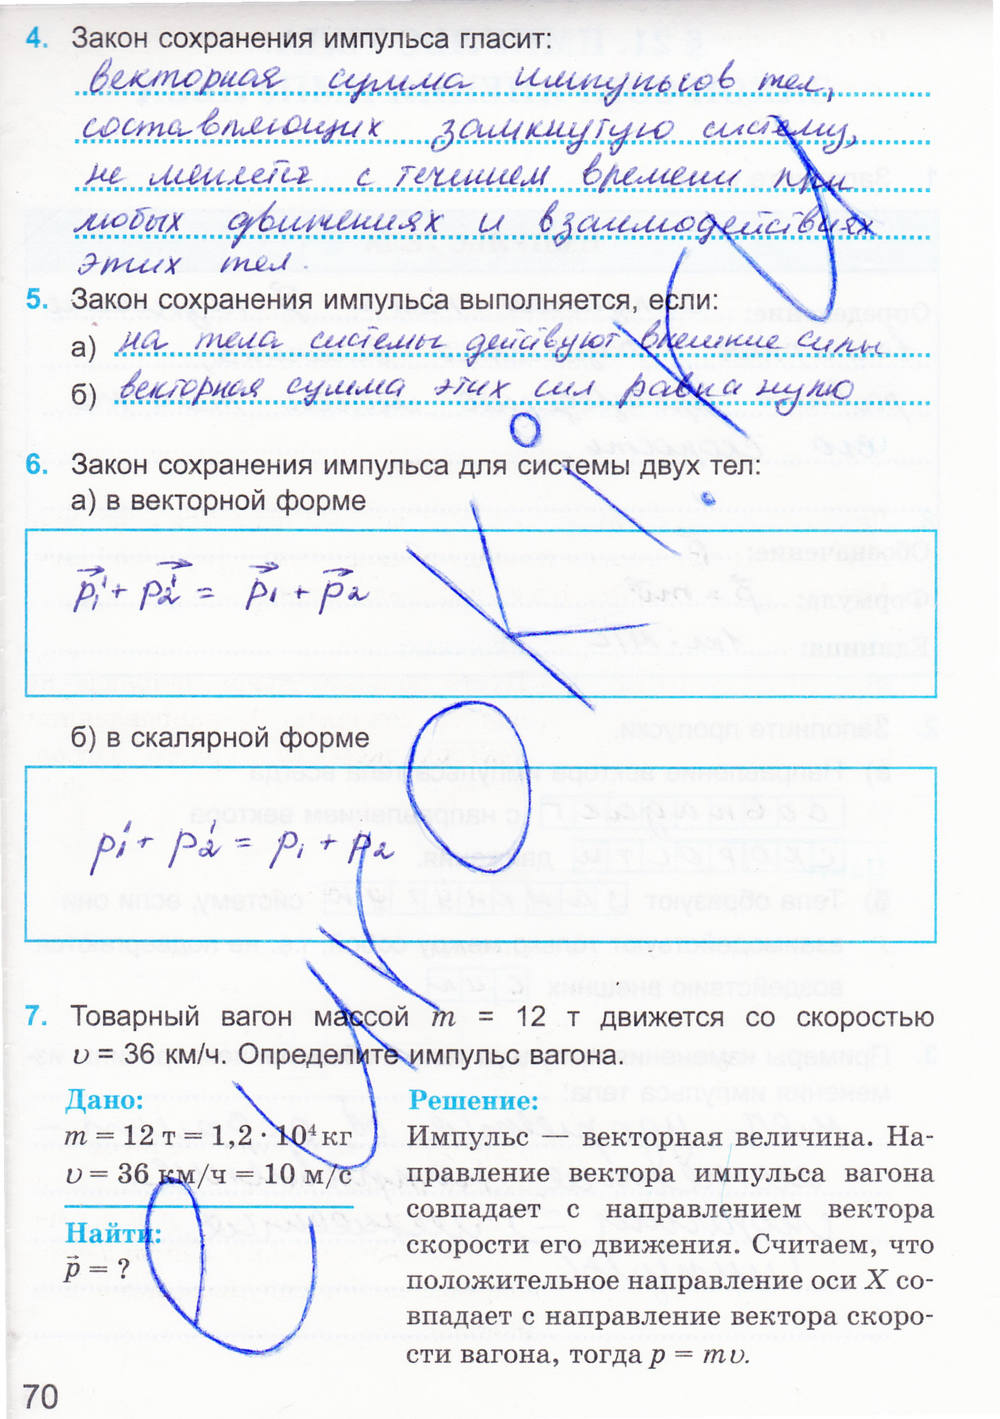 4. Закон сохранения импульса гласит:
векторная сумма импульсов тел,
составляющих замкнутую систему,
не меняется с течением времени при
любых движениях и взаимодействиях
этих тел.
5. Закон сохранения импульса выполняется, если:
а) на тела системы действуют внешние силы
б) векторная сумма этих сил равна нулю
6. Закон сохранения импульса для системы двух тел:
а) в векторной форме
p⃗₁' + p⃗₂' = p⃗₁ + p⃗₂
б) в скалярной форме
p₁' + p₂' = p₁ + p₂
7. Товарный вагон массой m = 12 т движется со скоростью
υ = 36 км/ч. Определите импульс вагона.
Дано:
m = 12 т = 1,2 · 10⁴ кг
υ = 36 км/ч = 10 м/с
Найти:
p⃗ = ?
Решение:
Импульс – векторная величина. На-
правление вектора импульса вагона
совпадает с направлением вектора
скорости его движения. Считаем, что
положительное направление оси X со-
впадает с направление вектора скоро-
сти вагона, тогда p = mυ.
70